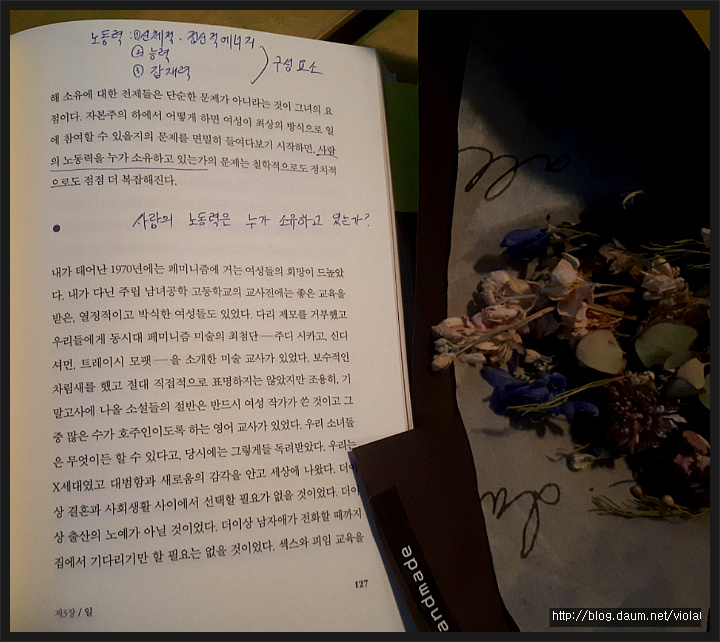 노동력 : ① 신체적 · 정신적 에너지
② 능력
③ 잠재력
구성 요소
해 소유에 대한 전제들은 단순한 문제가 아니라는 것이 그녀의 요
점이다. 자본주의 하에서 어떻게 하면 여성이 최상의 방식으로 일
에 참여할 수 있을지의 문제를 면밀히 들여다보기 시작하면, 사람
의 노동력을 누가 소유하고 있는가의 문제는 철학적으로도 정치적
으로도 점점 더 복잡해진다.
사람의 노동력은 누가 소유하고 있는가?
내가 태어난 1970년에는 페미니즘에 거는 여성들의 희망이 드높았
다. 내가 다닌 주립 남녀공학 고등학교의 교사진에는 좋은 교육을
받은, 열정적이고 박식한 여성들도 있었다. 다리 제모를 거부했고
우리들에게 동시대 페미니즘 미술의 최첨단—주디 시카고, 신디
셔먼, 트레이시 모팻—을 소개한 미술 교사가 있었다. 보수적인
차림새를 했고 절대 직접적으로 표명하지는 않았지만 조용히, 기
말고사에 나올 소설들의 절반은 반드시 여성 작가가 쓴 것이고 그
중 많은 수가 호주인이도록 하는 영어 교사가 있었다. 우리 소녀들
은 무엇이든 할 수 있다고, 당시에는 그렇게들 독려받았다. 우리는
X세대였고 대범함과 새로움의 감각을 안고 세상에 나왔다. 더이
상 결혼과 사회생활 사이에서 선택할 필요가 없을 것이었다. 더이
상 출산의 노예가 아닐 것이었다. 더이상 남자애가 전화할 때까지
집에서 기다리기만 할 필요는 없을 것이었다. 섹스와 피임 교육을
127
제3장 / 일
andmade
http://blog.daum.net/violal